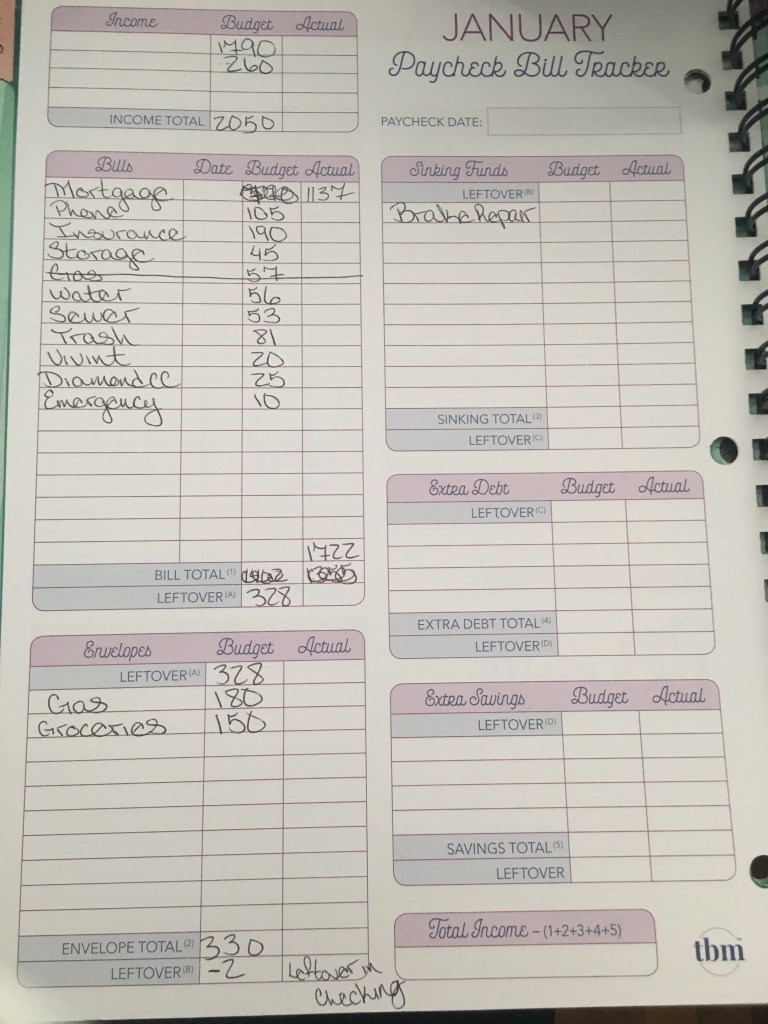 JANUARY
Paycheck Bill Tracker
PAYCHECK DATE:
Income Budget Actual
1790
260
INCOME TOTAL 2050
Bills Date Budget Actual
Mortgage 1137
Phone 105
Insurance 190
Storage 45
Gas 57
Water 56
Sewer 53
Trash 81
Vivint 20
Diamond CC 25
Emergency 10
1722
BILL TOTAL (1)
LEFTOVER (A) 328
Envelopes Budget Actual
LEFTOVER (A) 328
Gas 180
Groceries 150
ENVELOPE TOTAL (2) 330
LEFTOVER (B) -2 Leftover in
checking
Sinking Funds Budget Actual
LEFTOVER (B)
Brake Repair
SINKING TOTAL (3)
LEFTOVER (C)
Extra Debt Budget Actual
LEFTOVER (C)
EXTRA DEBT TOTAL (4)
LEFTOVER (D)
Extra Savings Budget Actual
LEFTOVER (D)
SAVINGS TOTAL (5)
LEFTOVER
Total Income – (1+2+3+4+5)
tbm